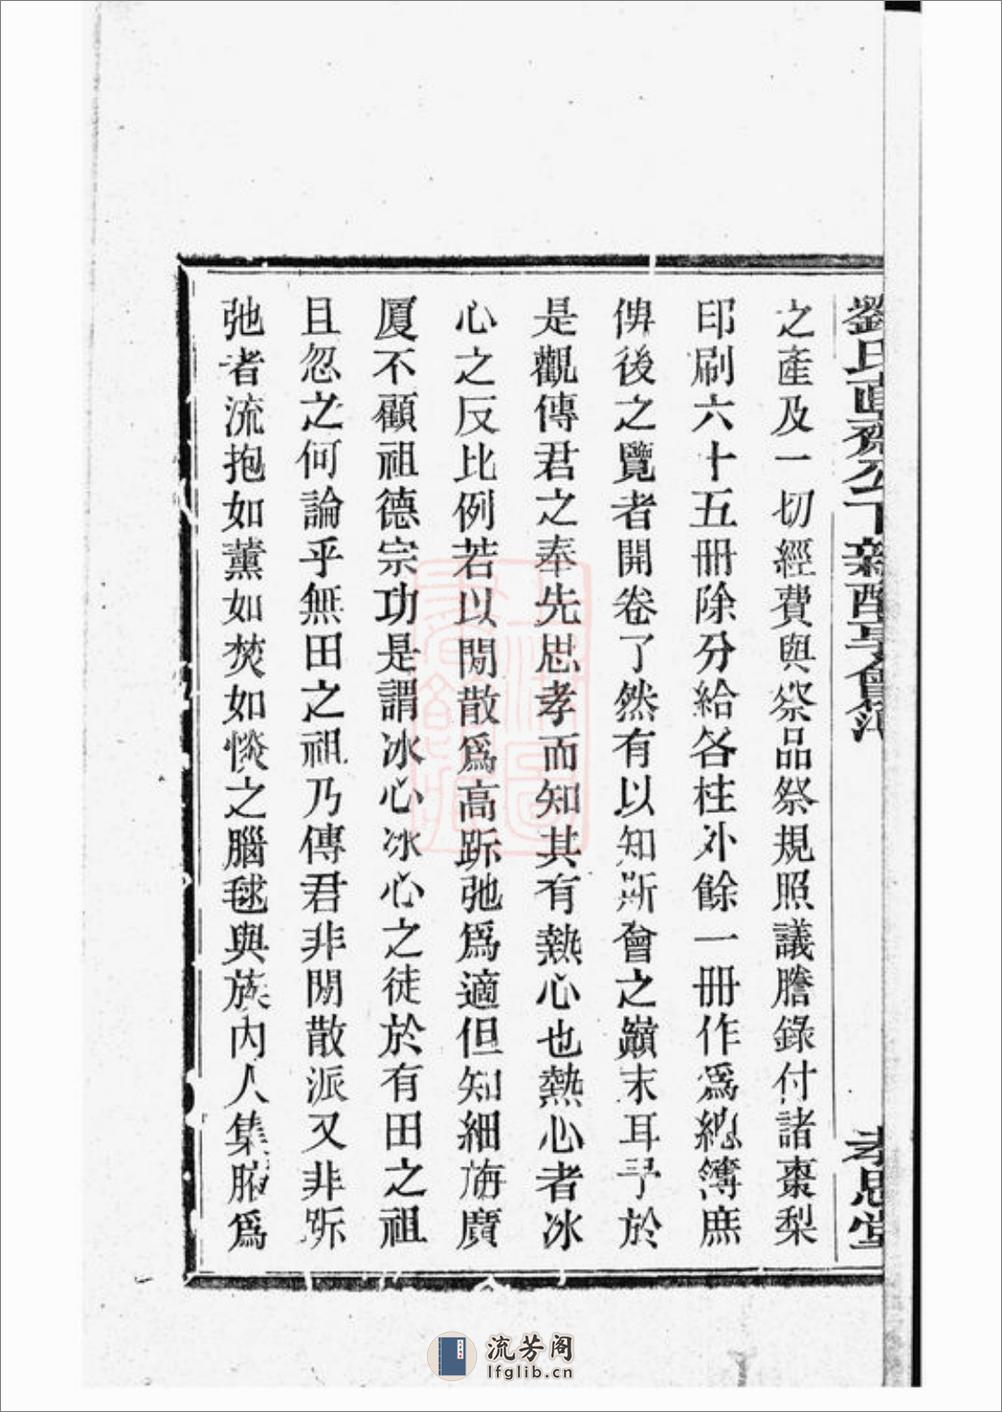 劉氏直齋公下新醮□會簿 孝思堂
之產及一切經費與祭品祭規照議謄錄付諸棗梨
印刷六十五冊除分給各柱外餘一冊作爲總簿庶
俾後之覽者開卷了然有以知斯會之巔末耳予於
是觀傳君之奉先思孝而知其有熱心也熱心者冰
心之反比例若以閒散爲高跅弛爲適但知細旃廣
厦不顧祖德宗功是謂冰心冰心之徒於有田之祖
且忽之何論乎無田之祖乃傳君非閒散派又非跅
弛者流抱如薰如焚如惔之腦毬與族內人集腋爲
流芳阁
lfglib.cn